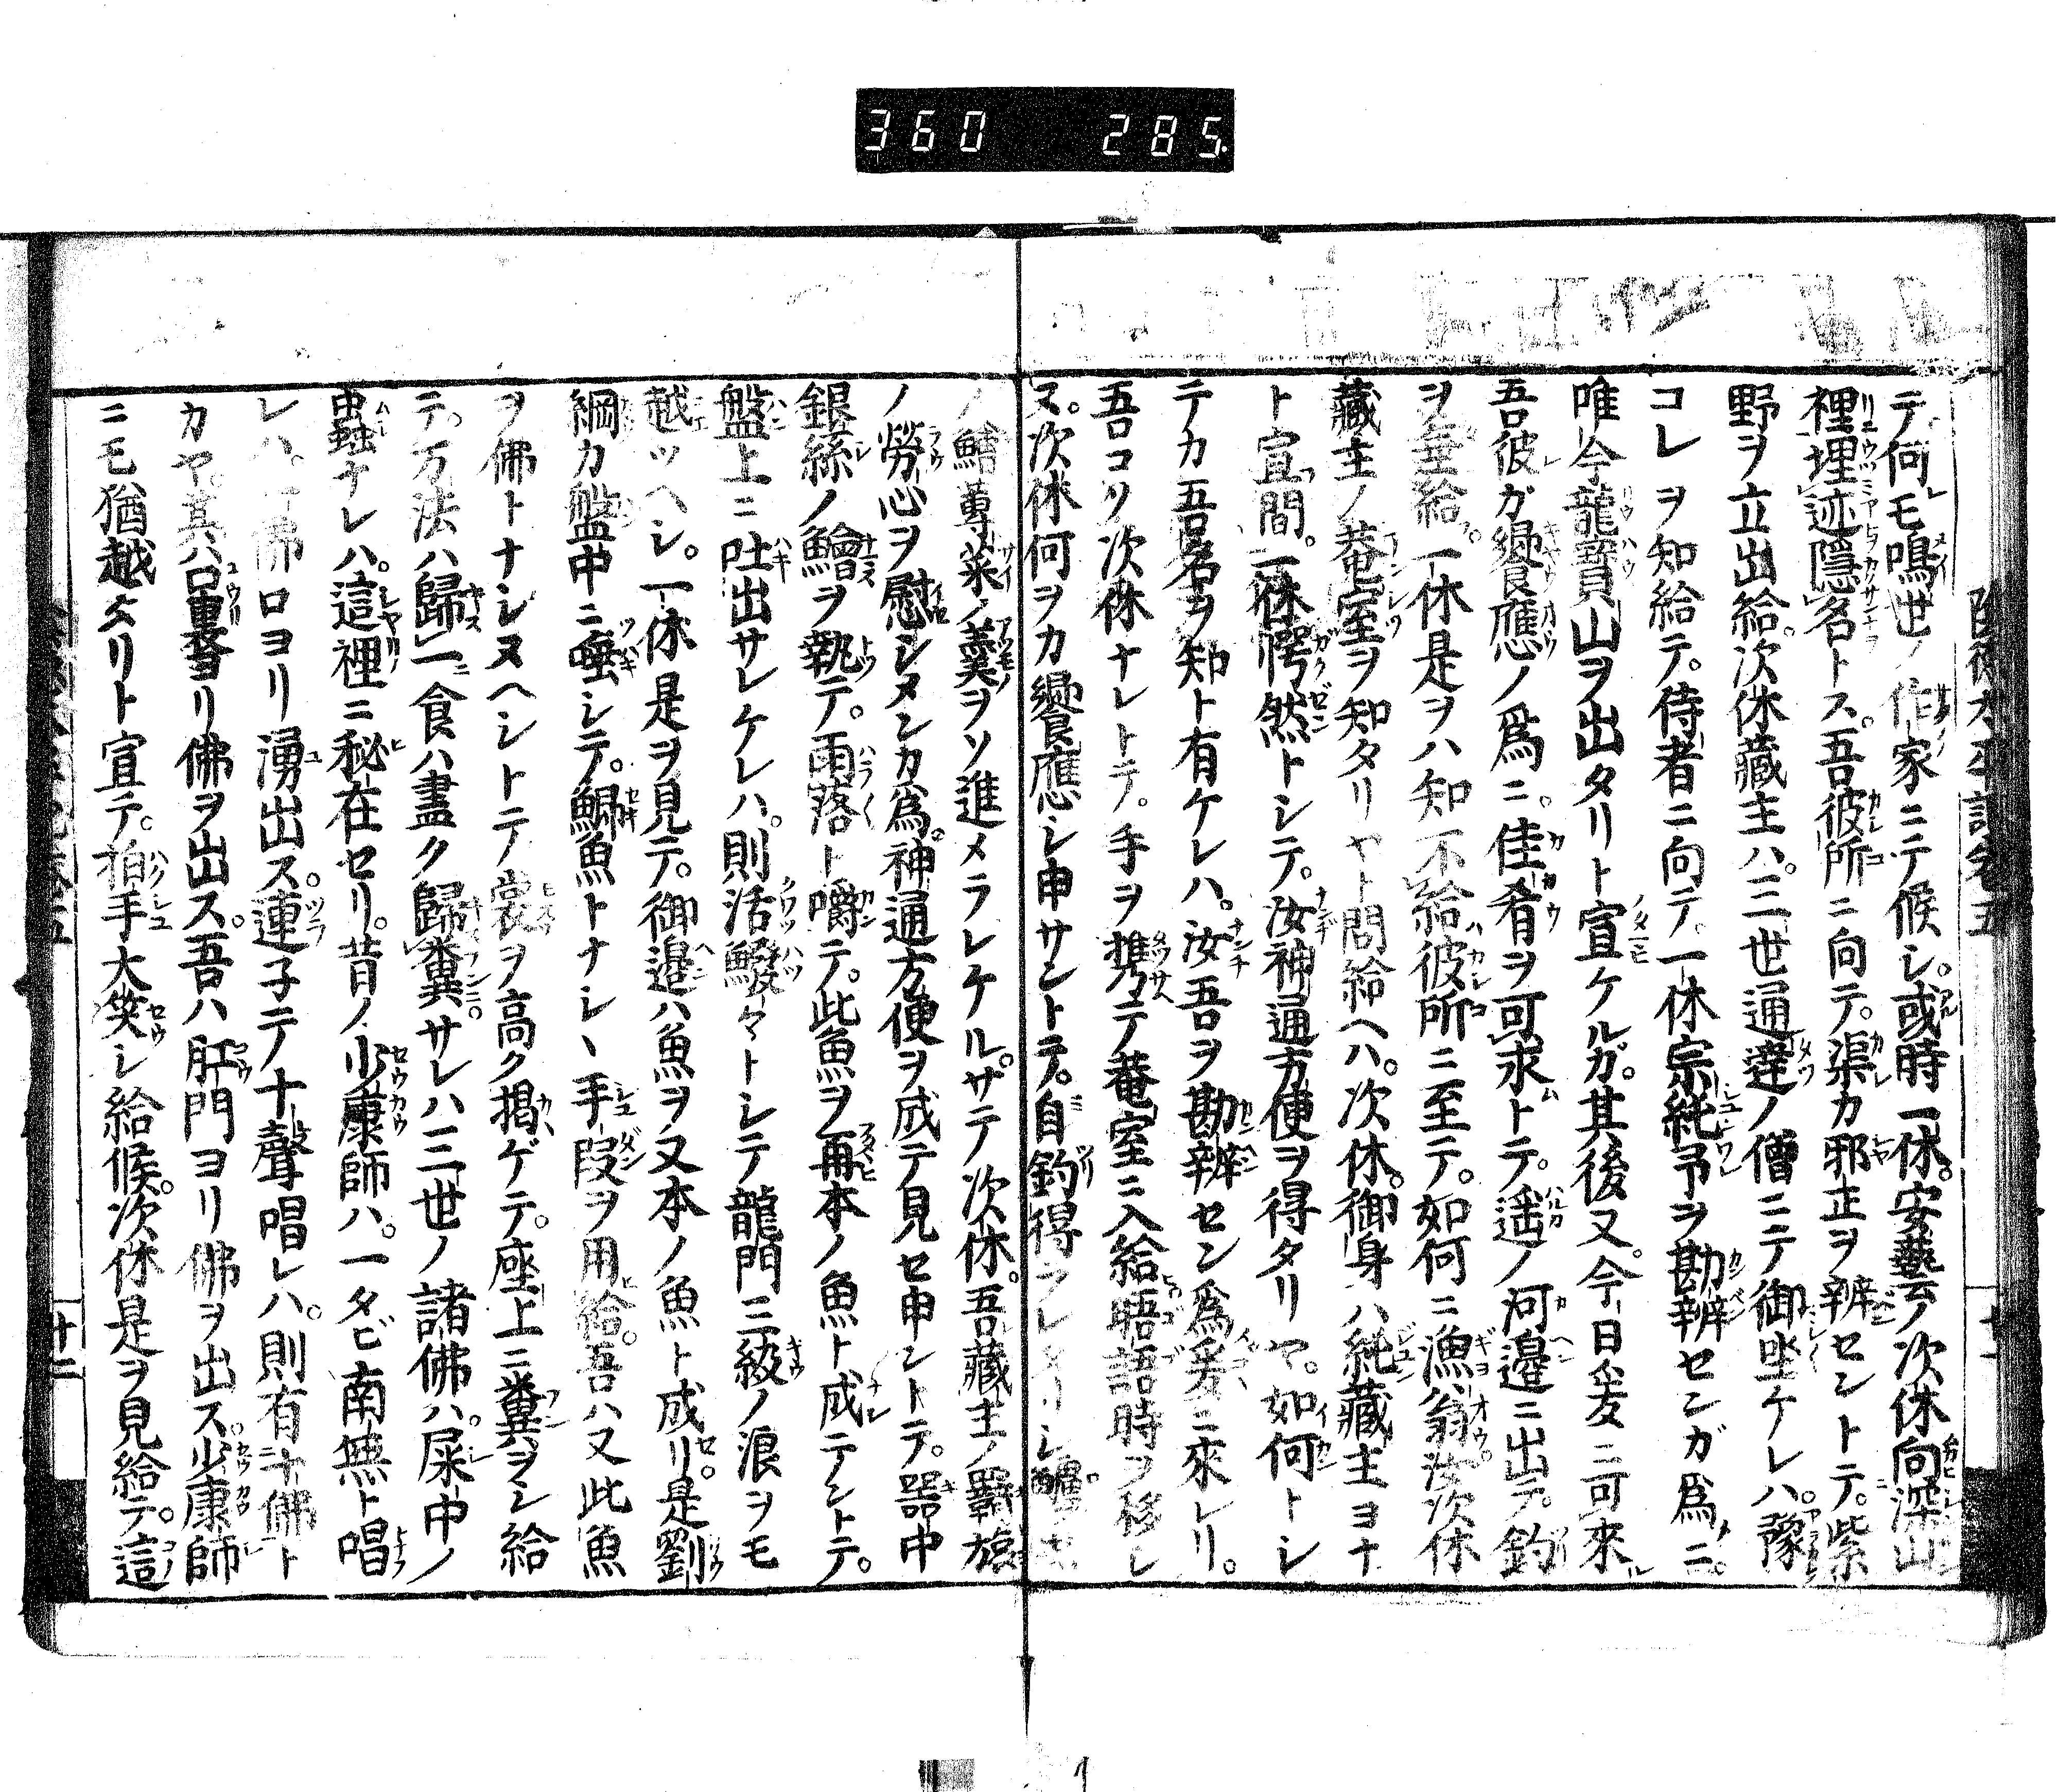 360 285
テ何モ鳴世ノ作家ニテ候シ。或時一休。安藝ノ次休向深山
裡埋迹隱名トス。吾彼所ニ向テ。渠カ邪正ヲ辨セントテ。紫
野ヲ立出給。次休藏主ハ。三世通達ノ僧ニテ御坐ケレハ。豫
コレヲ知給テ。侍者ニ向テ。一休宗純予ヲ勘辨センガ爲ニ。
唯今龍寶山ヲ出タリト宣ケルガ。其後又。今日爰ニ可來
吾彼ガ饗應ノ爲ニ。佳肴ヲ可求トテ。遥ノ河邉ニ出テ。釣
ヲ垂給フ。一休是ヲハ知不給彼所ニ至テ。如何ニ漁翁。汝次休
藏主ノ菴室ヲ知タリヤト問給ヘハ。次休。御身ハ純藏主ヨナ
ト宣間。一休愕然トシテ。汝神通方便ヲ得タリヤ。如何トシ
テカ吾名ヲ知ト有ケレハ。汝吾ヲ勘辨セン爲爰ニ來レリ。
吾コソ次休ナレトテ。手ヲ携テ菴室ニ入給晤語時ヲ移シ
ヌ。次休何ヲカ饗應シ申サントテ。自釣得ラレタリシ
ノ鱠蓴菜ノ羹ヲソ進メラレケル。サテ次休。吾藏主ノ羇旅
ノ勞心ヲ慰シメンカ為。神通方便ヲ成テ見セ申ントテ。器中
銀絲ノ鱠ヲ執テ。雨落ト嚼テ。此魚ヲ再本ノ魚ト成テントテ。
盤上ニ吐出サレケレハ。則活鱍々トシテ龍門三級ノ浪ヲモ
越ツヘシ。一休是ヲ見テ。御邉ハ魚ヲ又本ノ魚ト成リ。是劉
綱カ盤中ニ唾シテ。鯽魚トナシヽ手段ヲ用給。吾ハ又此魚
ヲ佛トナシヌヘシトテ裳ヲ高ク掲ゲテ。座上ニ糞ヲシ給
テ。万法ハ歸一ニ食ハ盡ク歸糞サレハ三世ノ諸佛ハ。屎中ノ
蟲ナレハ。這裡ニ秘在セリ。昔ノ少康師ハ。一タビ南無ト唱
レハ。一佛口ヨリ湧出ス。連子テノ十聲唱レハ。則有十佛ト
カヤ。其ハ口唇ヨリ佛ヲ出ス。吾ハ肛門ヨリ佛ヲ出ス。少康師
ニモ猶越タリト宣テ。拍手大笑シ給候。次休是ヲ見給テ。這
十二